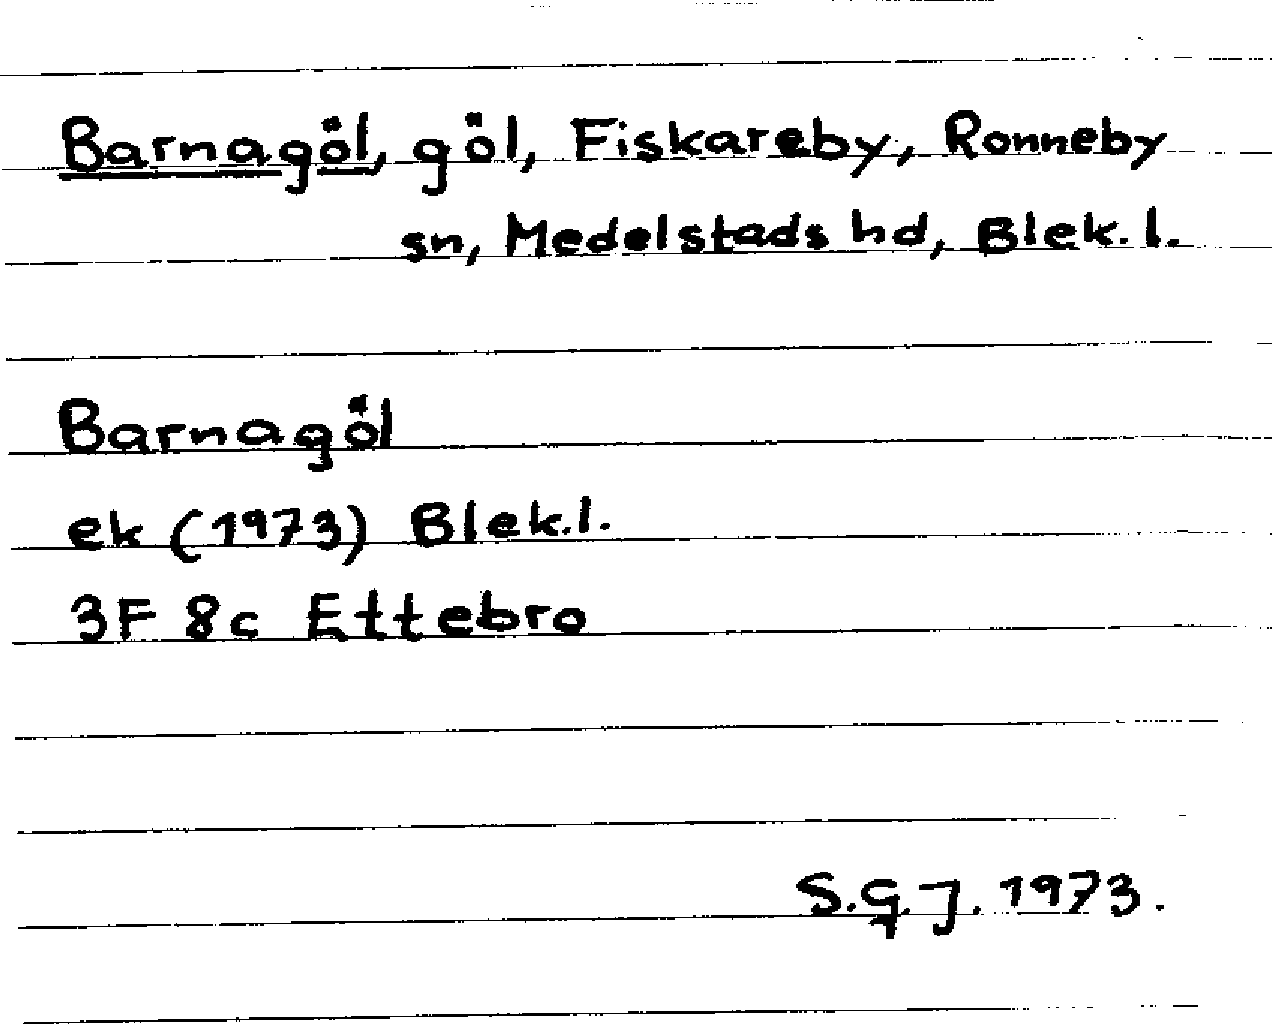 Barnagöl, göl, Fiskareby, Ronneby
sn, Medelstads hd, Blek. l.
Barnagöl
ek (1973) Blek.l.
3F 8c Ettebro
S.G.J. 1973.